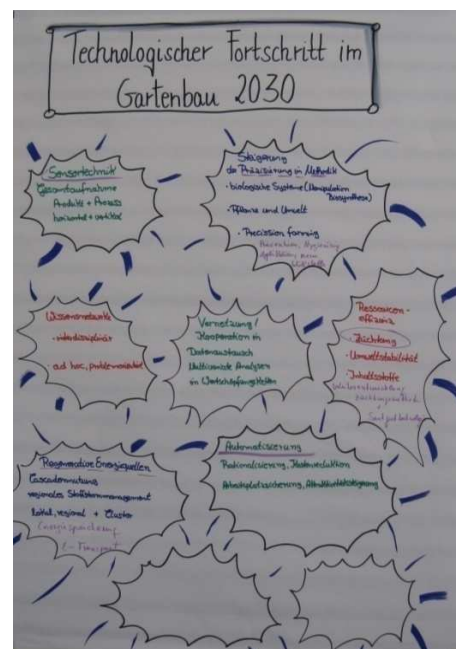 Technologischer Fortschritt im
Gartenbau 2030
Sensortechnik
Gesamtaufnahme
Produkte + Prozess
horizontal + vertikal
Steigerung
der Präzisierung in Methodik
• biologische Systeme (Manipulation
Biosynthese)
• Pflanze und Umwelt
• Precission farming
Wissensnetzwerke
• interdisziplinär
ad hoc, problemorientiert
Vernetzung /
Kooperation in
Datenaustausch
Multivariate Analysen
in Wertschöpfungsketten
Ressourcen-
effizienz
• Züchtung
• Umweltstabilität
• Inhaltsstoffe
Regenerative Energiequellen
Cascadennutzung
regionales Stoffstrommanagement
lokal, regional + Cluster
Energiespeicherung
E-Transport
Automatisierung
Rationalisierung, Kostenreduktion
Arbeitsplatzsicherung, Attraktivitätssteigerung